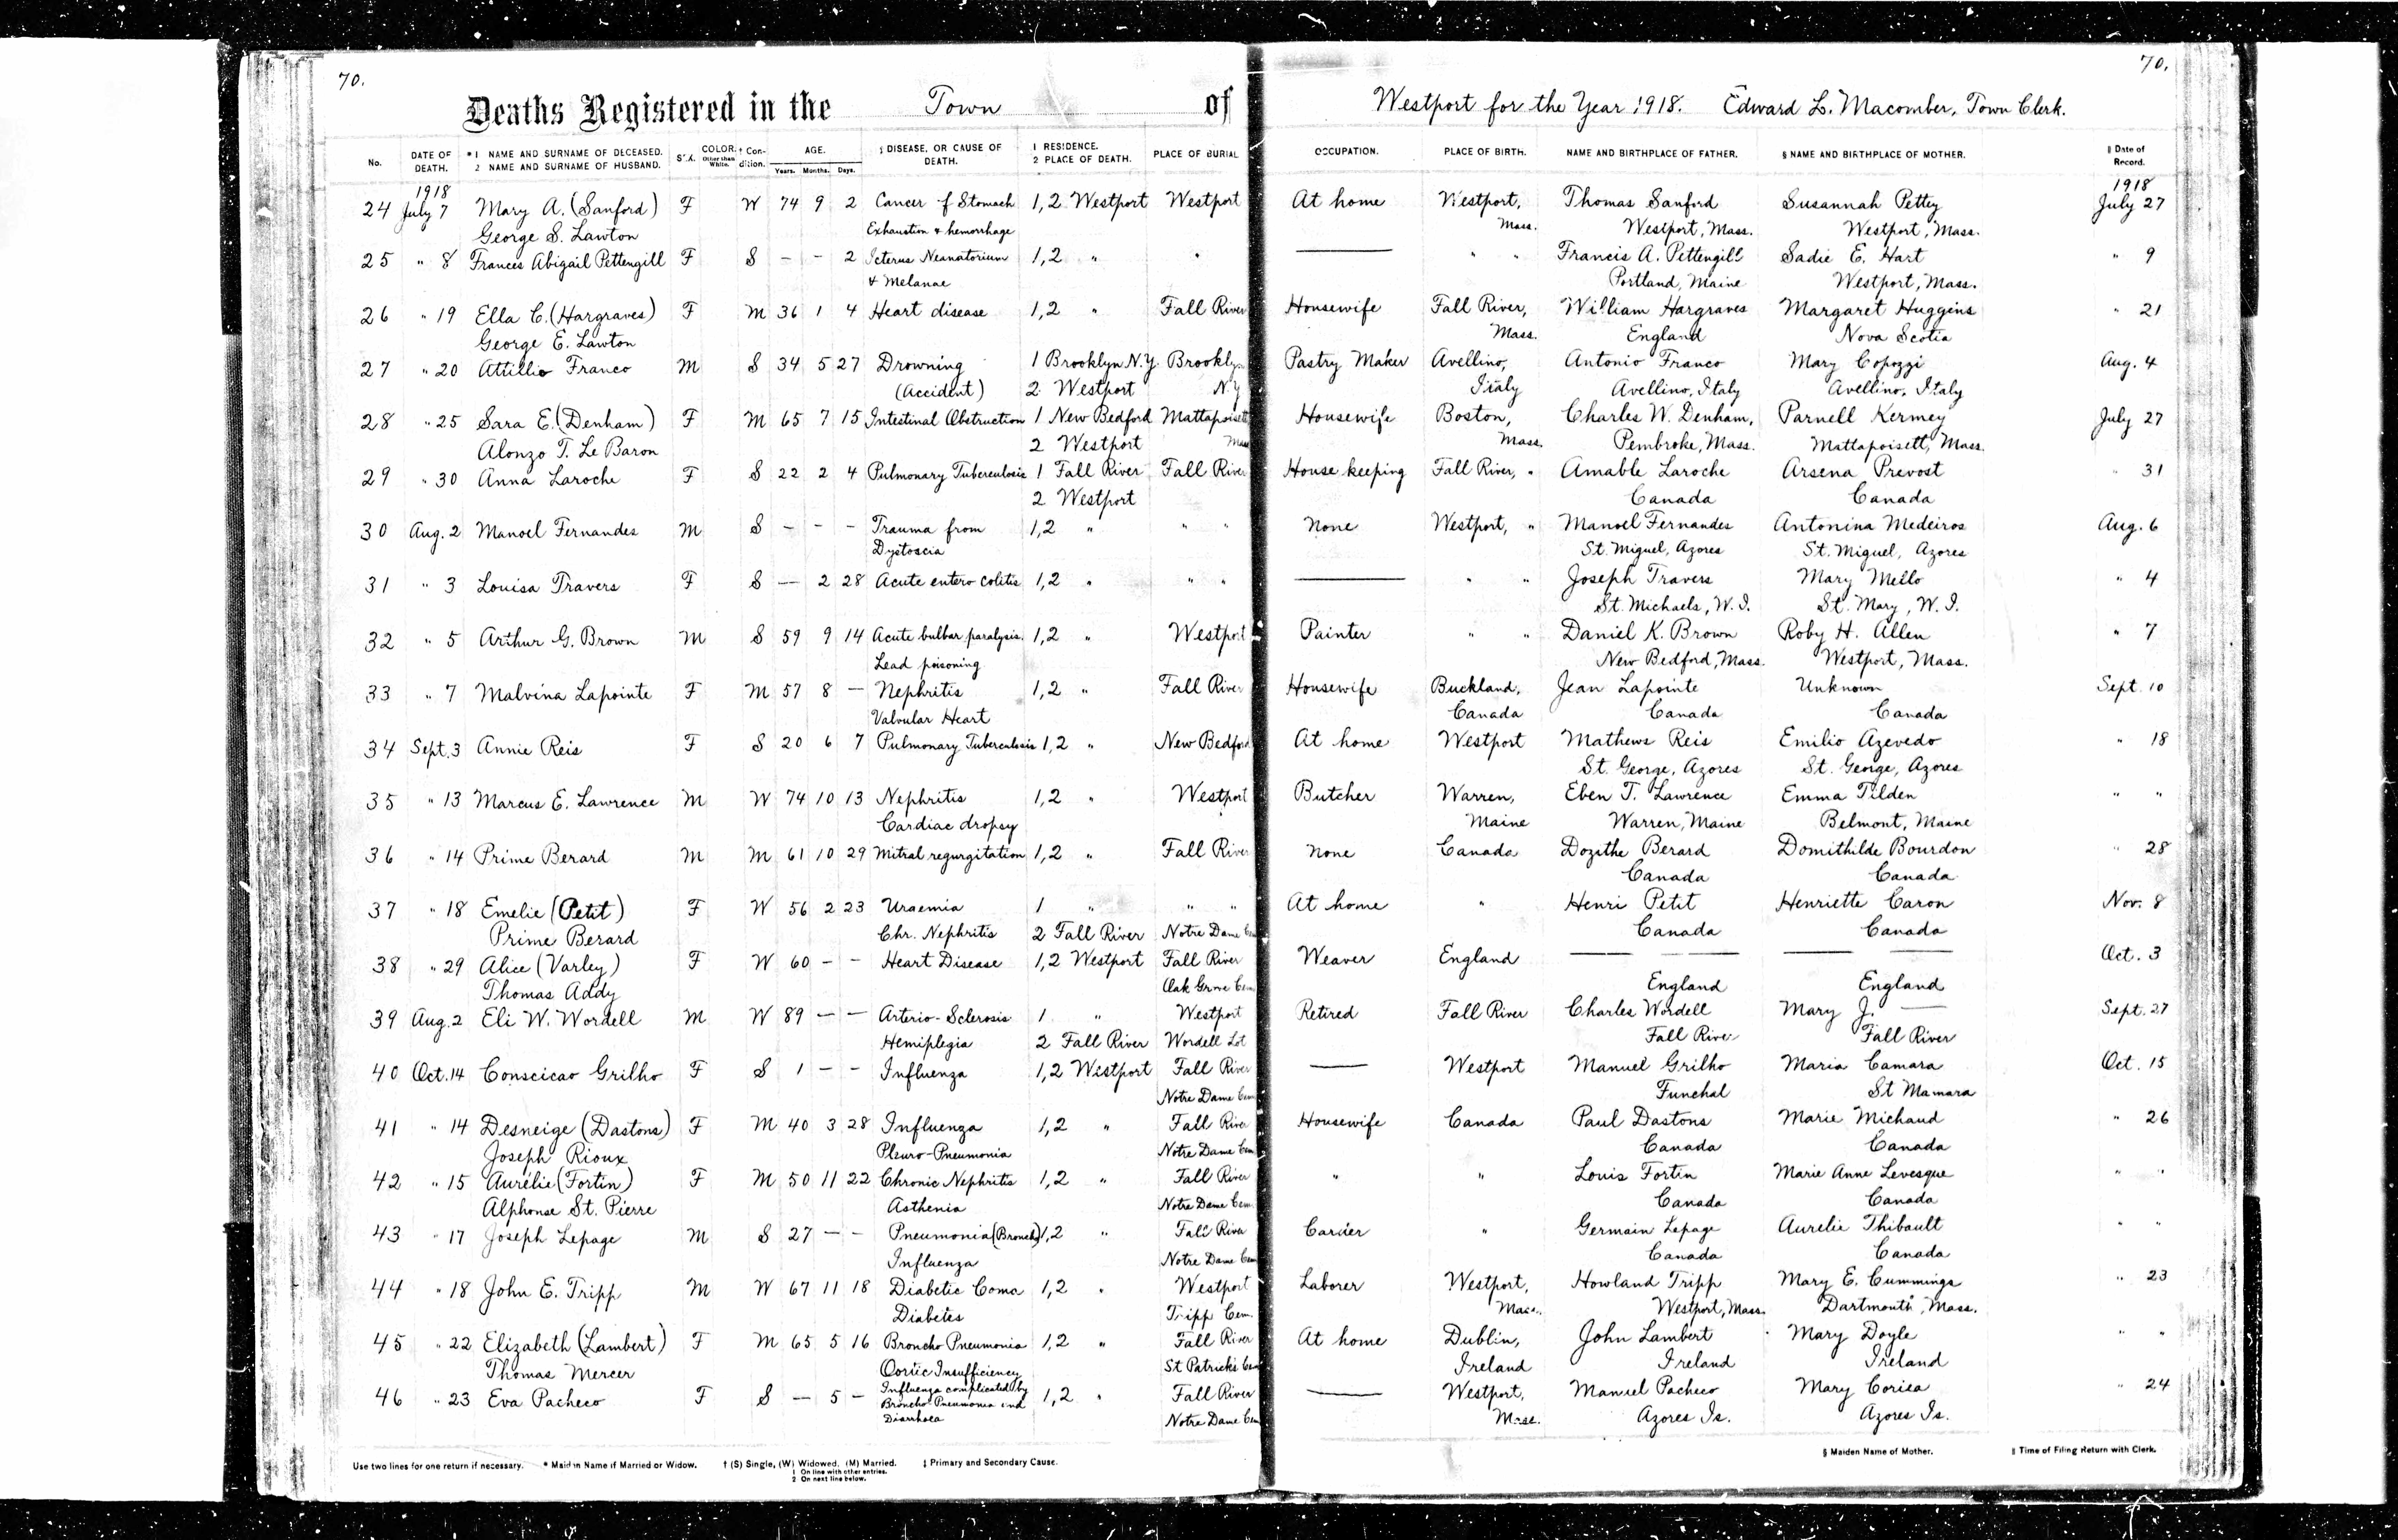 70.
70.
Deaths Registered in the Town of Westport for the Year 1918. Edward L. Macomber, Town Clerk.
No. DATE OF DEATH. *1 NAME AND SURNAME OF DECEASED. 2 NAME AND SURNAME OF HUSBAND. SEX. COLOR. Other than White. † Condition. AGE. Years. Months. Days. ‡ DISEASE, OR CAUSE OF DEATH. 1 RESIDENCE. 2 PLACE OF DEATH. PLACE OF BURIAL OCCUPATION. PLACE OF BIRTH. NAME AND BIRTHPLACE OF FATHER. § NAME AND BIRTHPLACE OF MOTHER. ‖ Date of Record.
1918 1918
24 July 7 Mary A. (Sanford) F W 74 9 2 Cancer of Stomach 1,2 Westport Westport At home Westport, Thomas Sanford Susannah Petty July 27
George S. Lawton Exhaustion & hemorrhage Mass. Westport, Mass. Westport, Mass.
25 " 8 Frances Abigail Pettengill F S - - 2 Icterus Neanatorium 1,2 " " — " " Francis A. Pettengill Sadie E. Hart " 9
& Melanae Portland, Maine Westport, Mass.
26 " 19 Ella C. (Hargraves) F M 36 1 4 Heart disease 1,2 " Fall River Housewife Fall River, William Hargraves Margaret Huggins " 21
George E. Lawton Mass. England Nova Scotia
27 " 20 Attillio Franco M S 34 5 27 Drowning 1 Brooklyn N.Y. Brooklyn Pastry Maker Avellino, Antonio Franco Mary Copozzi Aug. 4
(Accident) 2 Westport N.Y Italy Avellino, Italy Avellino, Italy
28 " 25 Sara E. (Denham) F M 65 7 15 Intestinal Obstruction 1 New Bedford Mattapoisett Housewife Boston, Charles W. Denham, Parnell Kermey July 27
Alonzo T. Le Baron 2 Westport Mass Mass. Pembroke, Mass. Mattapoisett, Mass.
29 " 30 Anna Laroche F S 22 2 4 Pulmonary Tuberculosis 1 Fall River Fall River House keeping Fall River, " Amable Laroche Arsena Prevost " 31
2 Westport Canada Canada
30 Aug. 2 Manoel Fernandes M S - - - Trauma from 1,2 " " " None Westport, " Manoel Fernandes Antonina Medeiros Aug. 6
Dystoscia St. Miguel, Azores St. Miguel, Azores
31 " 3 Louisa Travers F S — 2 28 Acute entero colitis 1,2 " " " — " " Joseph Travers Mary Mello " 4
St. Michaels, W. I. St. Mary, W. I.
32 " 5 Arthur G. Brown M S 59 9 14 Acute bulbar paralysis. 1,2 " Westport Painter " " Daniel K. Brown Roby H. Allen " 7
Lead poisoning New Bedford, Mass. Westport, Mass.
33 " 7 Malvina Lapointe F M 57 8 — Nephritis 1,2 " Fall River Housewife Buckland, Jean Lapointe Unknown Sept. 10
Valvular Heart Canada Canada Canada
34 Sept. 3 Annie Reis F S 20 6 7 Pulmonary Tuberculosis 1,2 " New Bedford At home Westport Mathews Reis Emilio Azevedo " 18
St. George, Azores St. George, Azores
35 " 13 Marcus E. Lawrence M W 74 10 13 Nephritis 1,2 " Westport Butcher Warren, Eben T. Lawrence Emma Tilden " "
Cardiac dropsy Maine Warren, Maine Belmont, Maine
36 " 14 Prime Berard M M 61 10 29 Mitral regurgitation 1,2 " Fall River None Canada Dozithe Berard Domithilde Bourdon " 28
Canada Canada
37 " 18 Emelie (Petit) F W 56 2 23 Uraemia 1 " " " At home " Henri Petit Henriette Caron Nov. 8
Prime Berard Chr. Nephritis 2 Fall River Notre Dame Cem Canada Canada
38 " 29 Alice (Varley) F W 60 - - Heart Disease 1,2 Westport Fall River Weaver England — — — — Oct. 3
Thomas Addy Oak Grove Cem England England
39 Aug. 2 Eli W. Wordell M W 89 — — Arterio-Sclerosis 1 " Westport Retired Fall River Charles Wordell Mary J. — Sept. 27
Hemiplegia 2 Fall River Wordell Lot Fall River Fall River
40 Oct. 14 Conscicao Grilho F S 1 - - Influenza 1,2 Westport Fall River — Westport Manuel Grilho Maria Camara Oct. 15
Notre Dame Cem Funchal St Mamara
41 " 14 Desneige (Dastons) F M 40 3 28 Influenza 1,2 " Fall River Housewife Canada Paul Dastons Marie Michaud " 26
Joseph Rioux Pleuro-Pneumonia Notre Dame Cem Canada Canada
42 " 15 Aurélie (Fortin) F M 50 11 22 Chronic Nephritis 1,2 " Fall River " " Louis Fortin Marie Anne Levesque " "
Alphonse St. Pierre Asthenia Notre Dame Cem Canada Canada
43 " 17 Joseph Lepage M S 27 - - Pneumonia (Bronch) 1,2 " Fall River Carder " Germain Lepage Aurelie Thibault " "
Influenza Notre Dame Cem Canada Canada
44 " 18 John E. Tripp M W 67 11 18 Diabetic Coma 1,2 " Westport Laborer Westport, Howland Tripp Mary E. Cummings " 23
Diabetes Tripp Cem. Mass. Westport, Mass. Dartmouth, Mass.
45 " 22 Elizabeth (Lambert) F M 65 5 16 Broncho Pneumonia 1,2 " Fall River At home Dublin, John Lambert Mary Doyle " "
Thomas Mercer Insufficiency St Patricks Cem Ireland Ireland Ireland
46 " 23 Eva Pacheco F S — 5 — Influenza complicated by Broncho Pneumonia and Diarrhoea 1,2 " Fall River — Westport, Manuel Pacheco Mary Coriea " 24
Notre Dame Cem Mass. Azores Is. Azores Is.
Use two lines for one return if necessary. * Maiden Name if Married or Widow. † (S) Single, (W) Widowed, (M) Married. ‡ Primary and Secondary Cause. § Maiden Name of Mother. ‖ Time of Filing Return with Clerk.
1 On line with other entries.
2 On next line below.